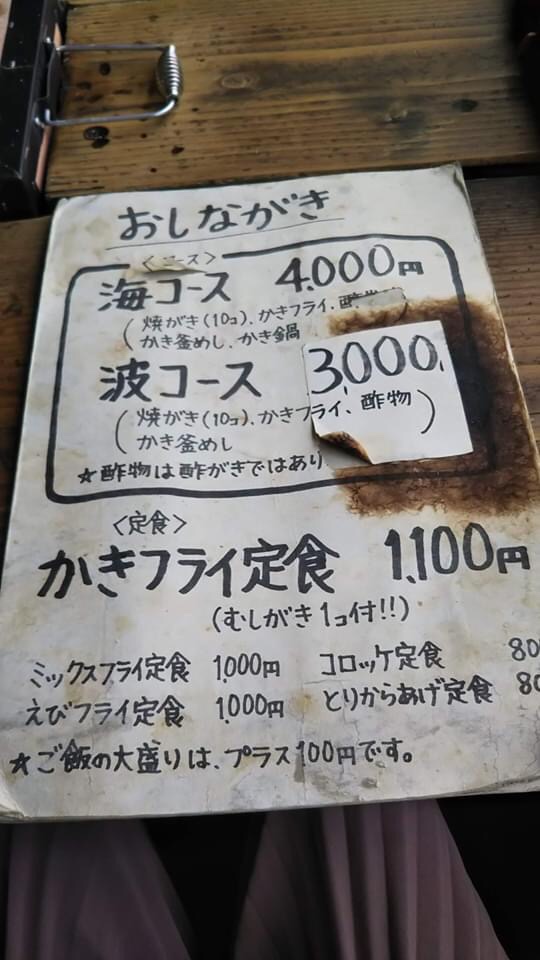 おしながき
〈コース〉
海コース 4,000円
(焼がき(10コ)、かきフライ、酢
かき釜めし、かき鍋
波コース 3,000
(焼がき(10コ)、かきフライ、酢物
かき釜めし )
★酢物は酢がきではあり
〈定食〉
かきフライ定食 1,100円
(むしがき1コ付!!)
ミックスフライ定食 1,000円 コロッケ定食 80
えびフライ定食 1,000円 とりからあげ定食 80
★ご飯の大盛りは、プラス100円です。